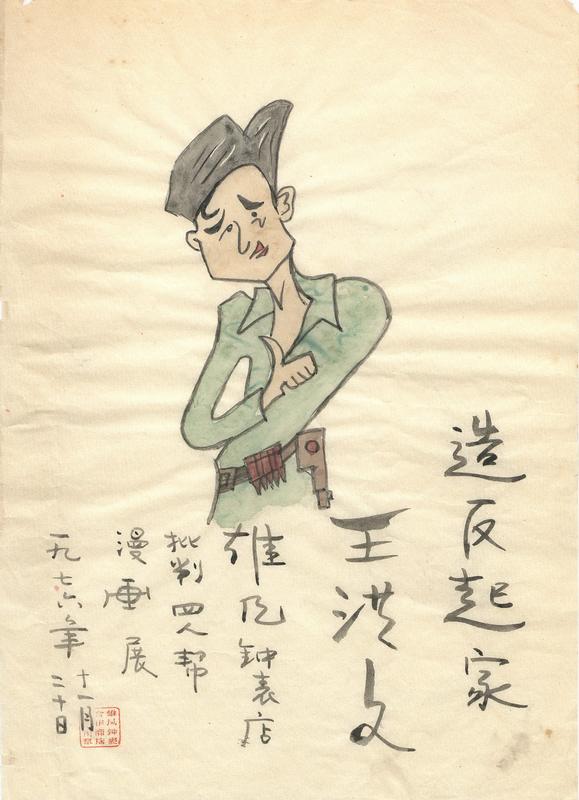 造反起家
王洪文
钟表店
批判四人帮
漫画展
一九七六年
十一月二十日